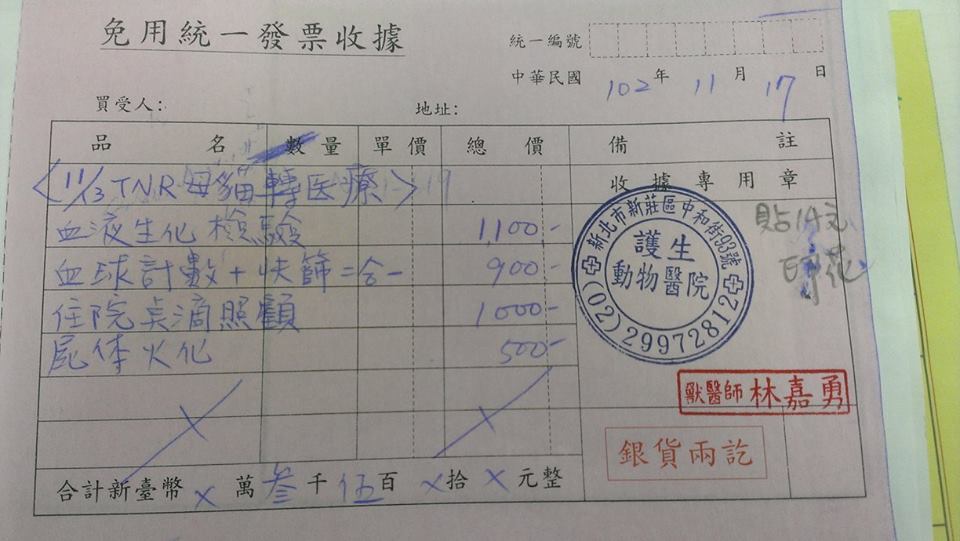 免用統一發票收據
統一編號
中華民國 102 年 11 月 17 日
買受人: 地址:
品名 數量 單價 總價 備註
<11/3 TNR母貓轉医療> 收據專用章
血液生化檢驗 1,100-
血球計數+快篩二合一 900-
住院点滴照顧 1000-
屍体火化 500-
新北市新莊區中和街93號
護生
動物醫院
(02)29972812
貼14元
印花
獸醫師林嘉勇
銀貨兩訖
合計新臺幣 x 萬 叁 千 伍 百 x 拾 x 元整